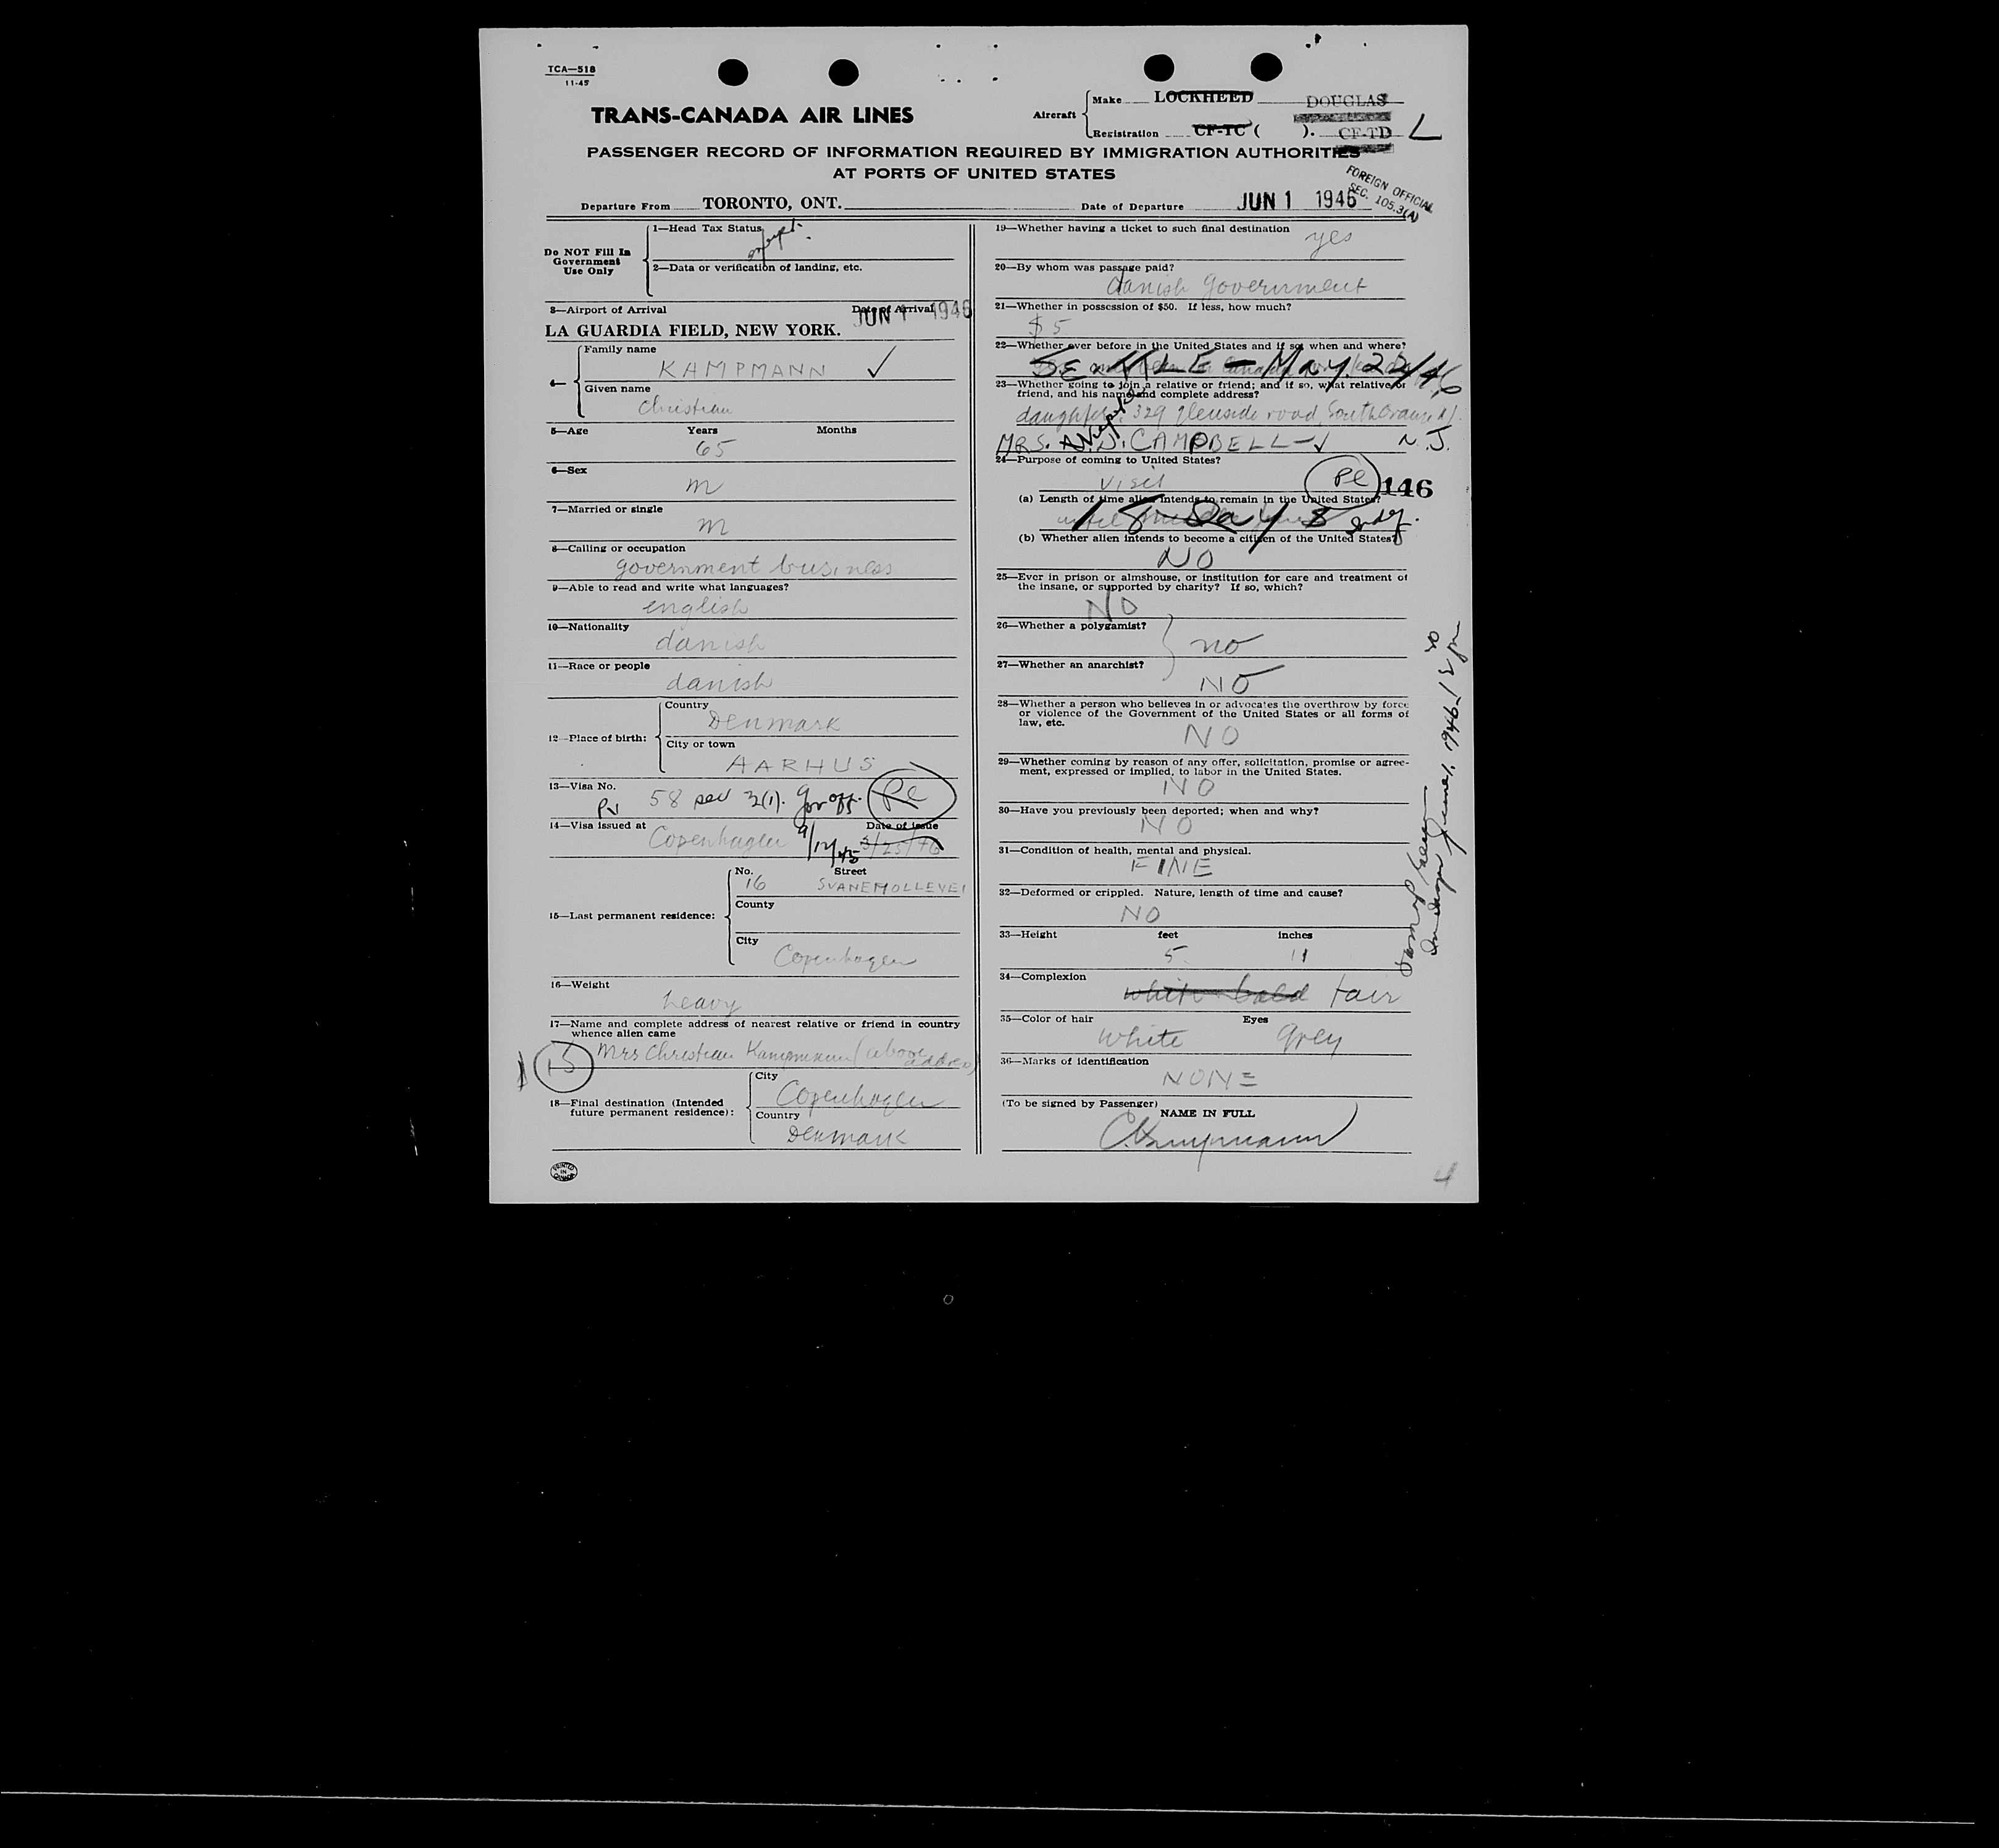 TCA—518
11-45
TRANS-CANADA AIR LINES
Aircraft
Make LOCKHEED DOUGLAS
Registration CF-TC ( ). CF-TD L
PASSENGER RECORD OF INFORMATION REQUIRED BY IMMIGRATION AUTHORITIES
AT PORTS OF UNITED STATES
FOREIGN OFFICIAL
SEC. 105.3(A)
Departure From TORONTO, ONT.
Date of Departure JUN 1 1946
Do NOT Fill In
Government
Use Only
1—Head Tax Status
2—Data or verification of landing, etc.
3—Airport of Arrival
Date of Arrival
JUN 1 1946
LA GUARDIA FIELD, NEW YORK.
4—
Family name
KAMPMANN ✓
Given name
Christian
5—Age Years Months
65
6—Sex
M
7—Married or single
M
8—Calling or occupation
government business
9—Able to read and write what languages?
english
10—Nationality
danish
11—Race or people
danish
12—Place of birth:
Country
Denmark
City or town
AARHUS
13—Visa No.
PV 58 sec 3(1). Gov off. Re
14—Visa issued at
Date of issue
Copenhagen 9/12/45 3/25/46
15—Last permanent residence:
No. Street
16 SVANEMOLLEVEI
County
City
Copenhagen
16—Weight
heavy
17—Name and complete address of nearest relative or friend in country
whence alien came
15 Mrs Christian Kampmann (above address)
18—Final destination (Intended
future permanent residence):
City
Copenhagen
Country
Denmark
PRINTED
IN
CANADA
19—Whether having a ticket to such final destination
yes
20—By whom was passage paid?
danish government
21—Whether in possession of $50. If less, how much?
$5
22—Whether ever before in the United States and if so, when and where?
SEATTLE - May. 22/46
23—Whether going to join a relative or friend; and if so, what relative or
friend, and his name and complete address?
daughter, 329 glenside road, South Orange NJ.
MRS. J. CAMPBELL - ✓ N.J.
24—Purpose of coming to United States?
visit
Re 146
(a) Length of time alien intends to remain in the United States?
15 Days
(b) Whether alien intends to become a citizen of the United States?
NO
25—Ever in prison or almshouse, or institution for care and treatment of
the insane, or supported by charity? If so, which?
NO
26—Whether a polygamist?
no
27—Whether an anarchist?
NO
28—Whether a person who believes in or advocates the overthrow by force
or violence of the Government of the United States or all forms of
law, etc.
NO
29—Whether coming by reason of any offer, solicitation, promise or agree-
ment, expressed or implied, to labor in the United States.
NO
30—Have you previously been deported; when and why?
NO
31—Condition of health, mental and physical.
FINE
32—Deformed or crippled. Nature, length of time and cause?
NO
33—Height feet inches
5 11
34—Complexion
white bald fair
35—Color of hair Eyes
white grey
36—Marks of identification
NONE
(To be signed by Passenger)
NAME IN FULL
C. Kampmann
4